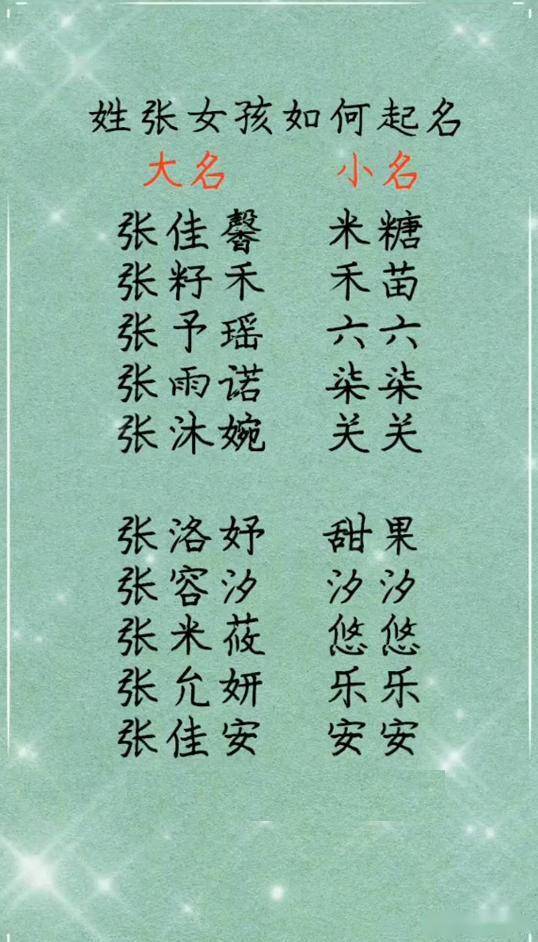 姓张女孩如何起名
大名 小名
张佳馨 米糖
张籽禾 禾苗
张予瑶 六六
张雨诺 柒柒
张沐婉 关关
张洛妤 甜果
张容汐 汐汐
张米莜 悠悠
张允妍 乐乐
张佳安 安安